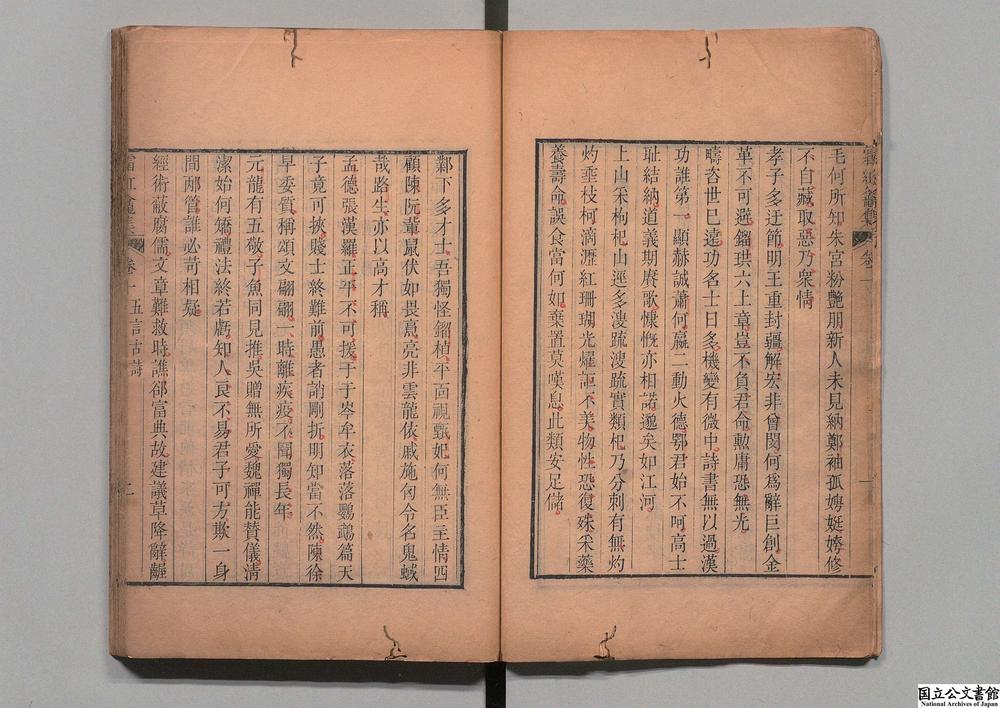 毛何所知朱宮粉艷朋新人未見納鄭袖孤娉娗姱修
不自藏取惡乃衆情
孝子多迂節明王重封疆解宏非曾閔何爲辭巨創金
革不可避鎦珙六上章豈不負君命勲庸恐無光
疇咨世巳遠功名士日多機變有微中詩書無以過漢
功誰第一顯赫誠蕭何嬴二動火德鄂君始不呵高士
耻結納道義期賡歌慷慨亦相諾邈矣如江河
上山采枸杞山逕多溲疏溲疏實類杞乃分刺有無灼
灼垂枝柯滴瀝紅珊瑚光燿詎不美物性恐復殊采藥
養壽命誤食當何如棄置莫嘆息此類安足儲
卷一
一
鄴下多才士吾獨怪鎦楨平面視甄妃何無臣主情四
顧陳阮輩鼠伏如畏萬亮非雲龍依戚施匈令名鬼蜮
哉路生亦以高才稱
孟德張漢羅正平不可援于于岑牟衣落落鸚鵡篇天
子竟可挾賤士終難前愚者誚剛折明知當不然陳徐
早委質稱頌文翩翩一時離疾疫不聞獨長年
元龍有五敬子魚同見推吳贈無所愛魏禪能贊儀清
潔始何矯禮法終若虧知人良不易君子可方欺一身
間邴管誰必苛相疑
經術蔽腐儒文章難救時譙郤富典故建議草降辭龌
霜紅龕集
卷一
五言古詩
二
国立公文書館
National Archives of Japan